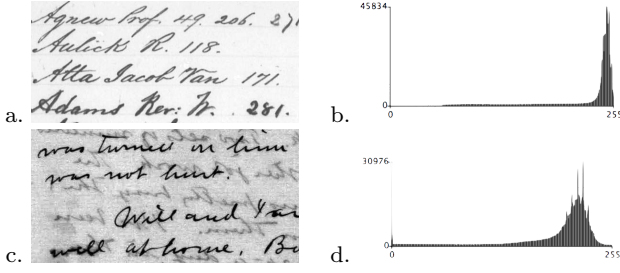 Agnew Prof. 49. 206. 271
Aulick R. 118.
Atta Jacob Van 171.
Adams Rev: W. 281.
a.
45834
0
0
255
b.
was turned on him
was not hurt.
Will and
well at home.
c.
30976
0
0
255
d.